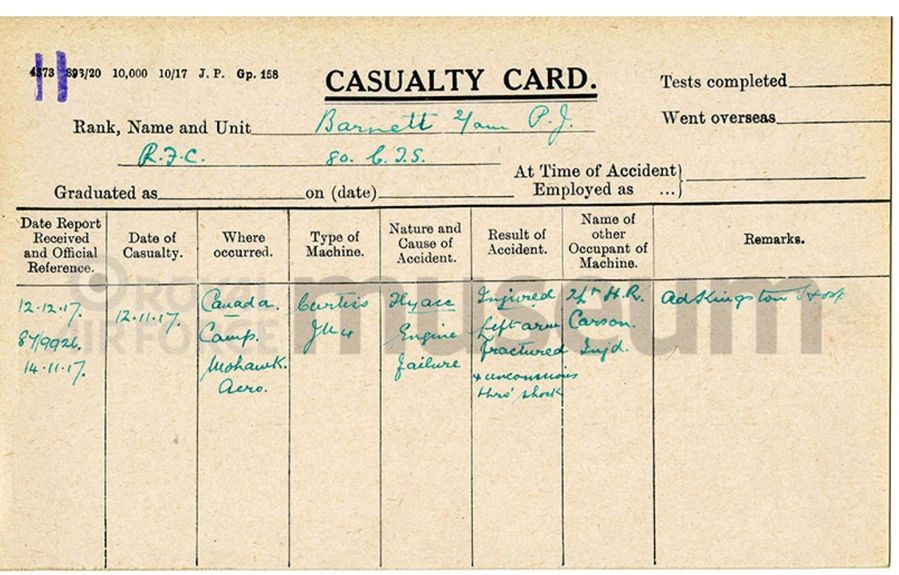 4373 893/20 10,000 10/17 J. P. Gp. 158
CASUALTY CARD.
Tests completed
Rank, Name and Unit Barnett 2/am P.J.
Went overseas
R.F.C. 80. C.T.S.
At Time of Accident
Employed as ...
Graduated as on (date)
Date Report Received and Official Reference.
Date of Casualty.
Where occurred.
Type of Machine.
Nature and Cause of Accident.
Result of Accident.
Name of other Occupant of Machine.
Remarks.
12.12.17.
87/9926.
14.11.17.
12.11.17.
Canada.
Camp.
Mohawk.
Aero.
Curtiss
JN4
Fly acc
Engine
failure
Injured
left arm
fractured
+ unconscious
thro' shock
H.R.
Carson.
Injd.
ad Kingston Hosp
ROYAL
AIR FORCE
museum